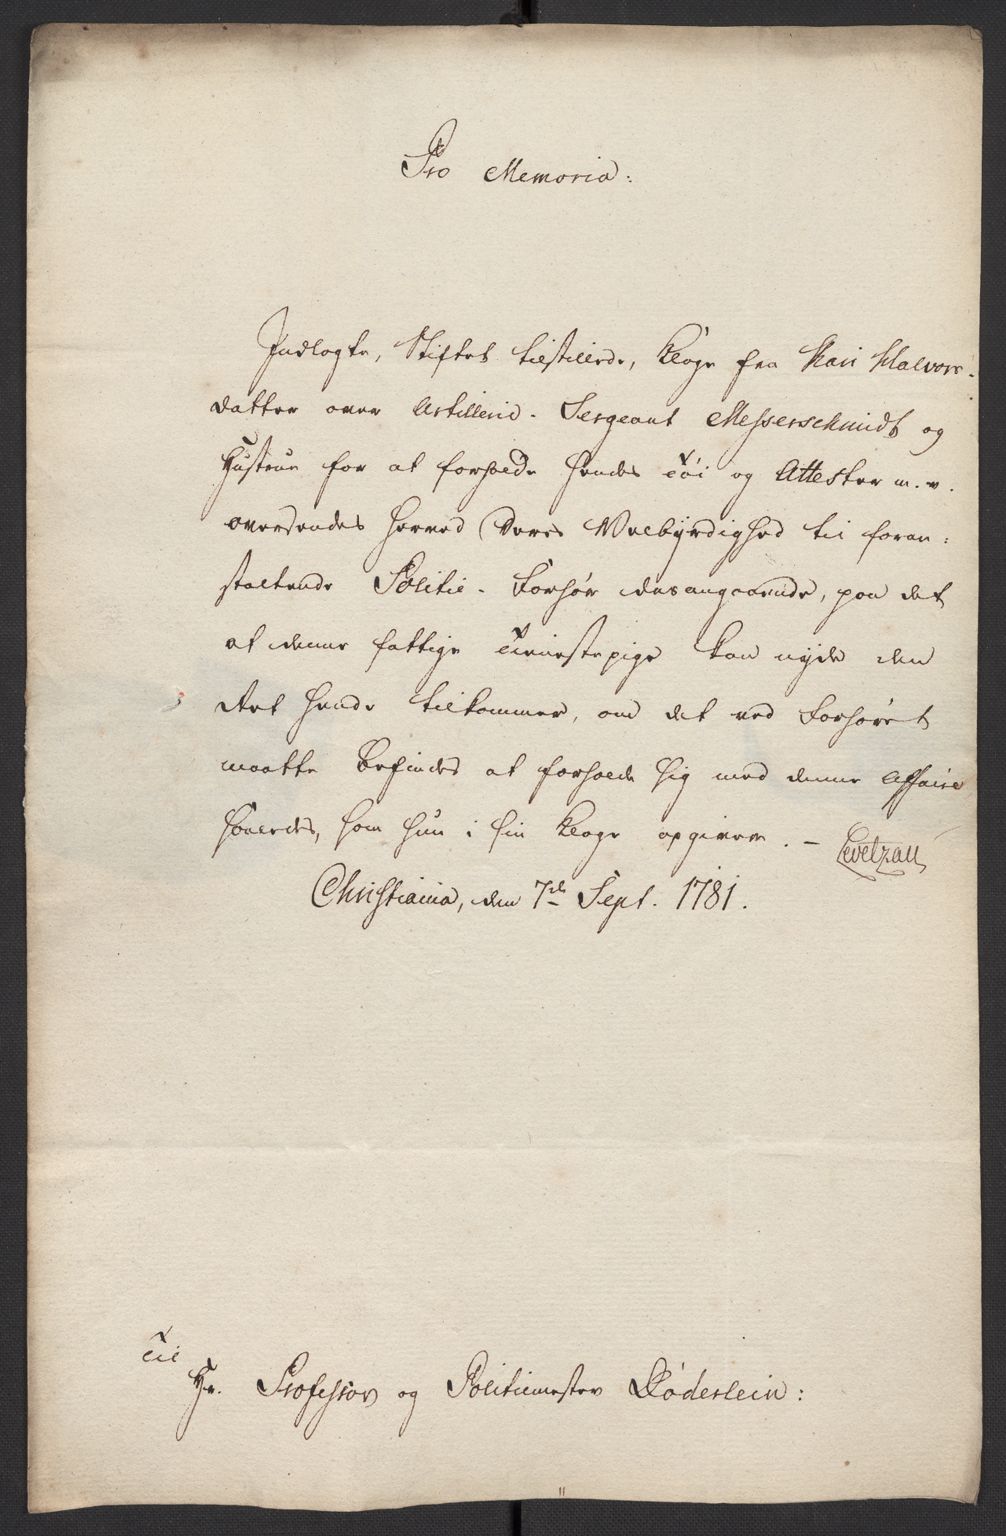 Pro Memoria:
Indlagte, Stiftet tilstillede, Klage fra Kari Halvors-
datter over Artillerie-Sergeant Messerschmidt og
Hustrue for at forholde hendes Tøi og Attester m. v.
oversendes herved Deres Velbyrdighed til foran-
staltende Politie-Forhør desangaaende, paa det
at denne fattige Tienistepige kan nyde den
Ret hende tilkommer, om det ved Forhøret
maatte befindes at forholde sig med denne Affaire
saaledes, som hun i sin Klage opgiver. –
Levetzau
Christiania, den 7de Sept. 1781.
Til
Hr. Professor og Politiemester Døderlein: